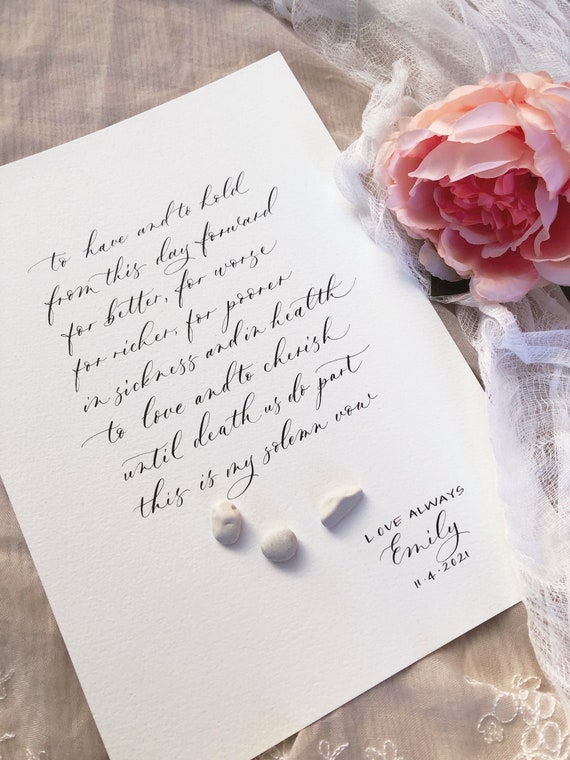 to have and to hold
from this day forward
for better, for worse
for richer, for poorer
in sickness and in health
to love and to cherish
until death us do part
this is my solemn vow
LOVE ALWAYS
Emily
11.4.2021